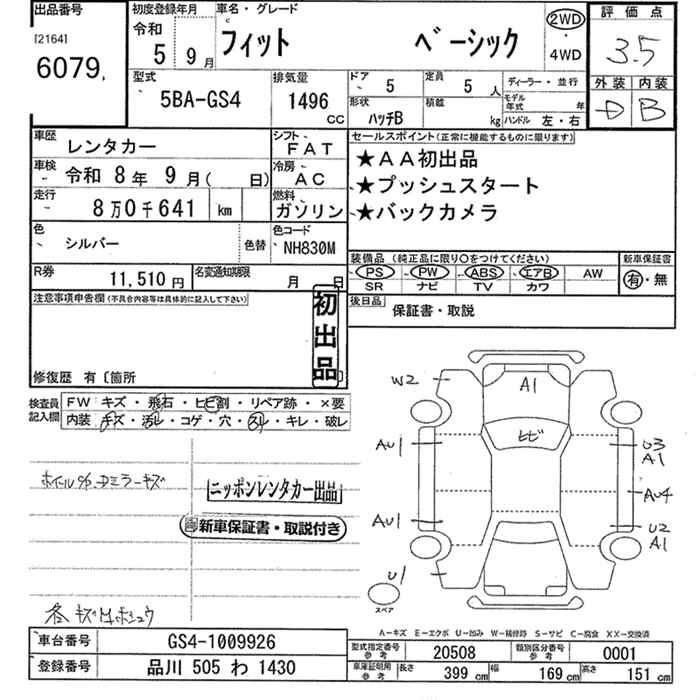 出品番号
[2164]
6079,
初度登録年月
令和
5 9月
車名・グレード
フィット ベーシック
2WD
・
4WD
評価点
3.5
外装 内装
D B
型式
5BA-GS4
排気量
1496
CC
ドア 5
定員 5 人
形状 ハッチB
積載 kg
ディーラー・並行
モデル年式 年
ハンドル 左・右
車歴 レンタカー
シフト FAT
車検 令和 8年 9月( 日)
冷房 AC
走行 8万0千641 km
燃料 ガソリン
色 シルバー 色替
色コード NH830M
R券 11,510円
名変通知期限 月 日
セールスポイント(正常に機能するものに限ります)
★AA初出品
★プッシュスタート
★バックカメラ
装備品(純正品に限り○をつけてください)
新車保証書
PS PW ABS エアB AW
SR ナビ TV カワ
有・無
後日品 保証書・取説
注意事項申告欄(不具合内容等は具体的に記入して下さい)
初出品
修復歴 有〔箇所
検査員記入欄
FW キズ・飛石・ヒビ割・リペア跡・×要
内装 キズ・汚レ・コゲ・穴・スレ・キレ・破レ
ニッポンレンタカー出品
新車保証書・取説付き
W2
A1
ヒビ
AU1
U3
A1
AU4
AU1
U2
A1
U1
スペア
A-キズ E-エクボ U-凹み W-補修跡 S-サビ C-腐食 XX-交換済
車台番号 GS4-1009926
登録番号 品川 505 わ 1430
型式指定番号 参考 20508
類別区分番号 参考 0001
車庫証明用 参考 長さ 399 cm 幅 169 cm 高さ 151 cm